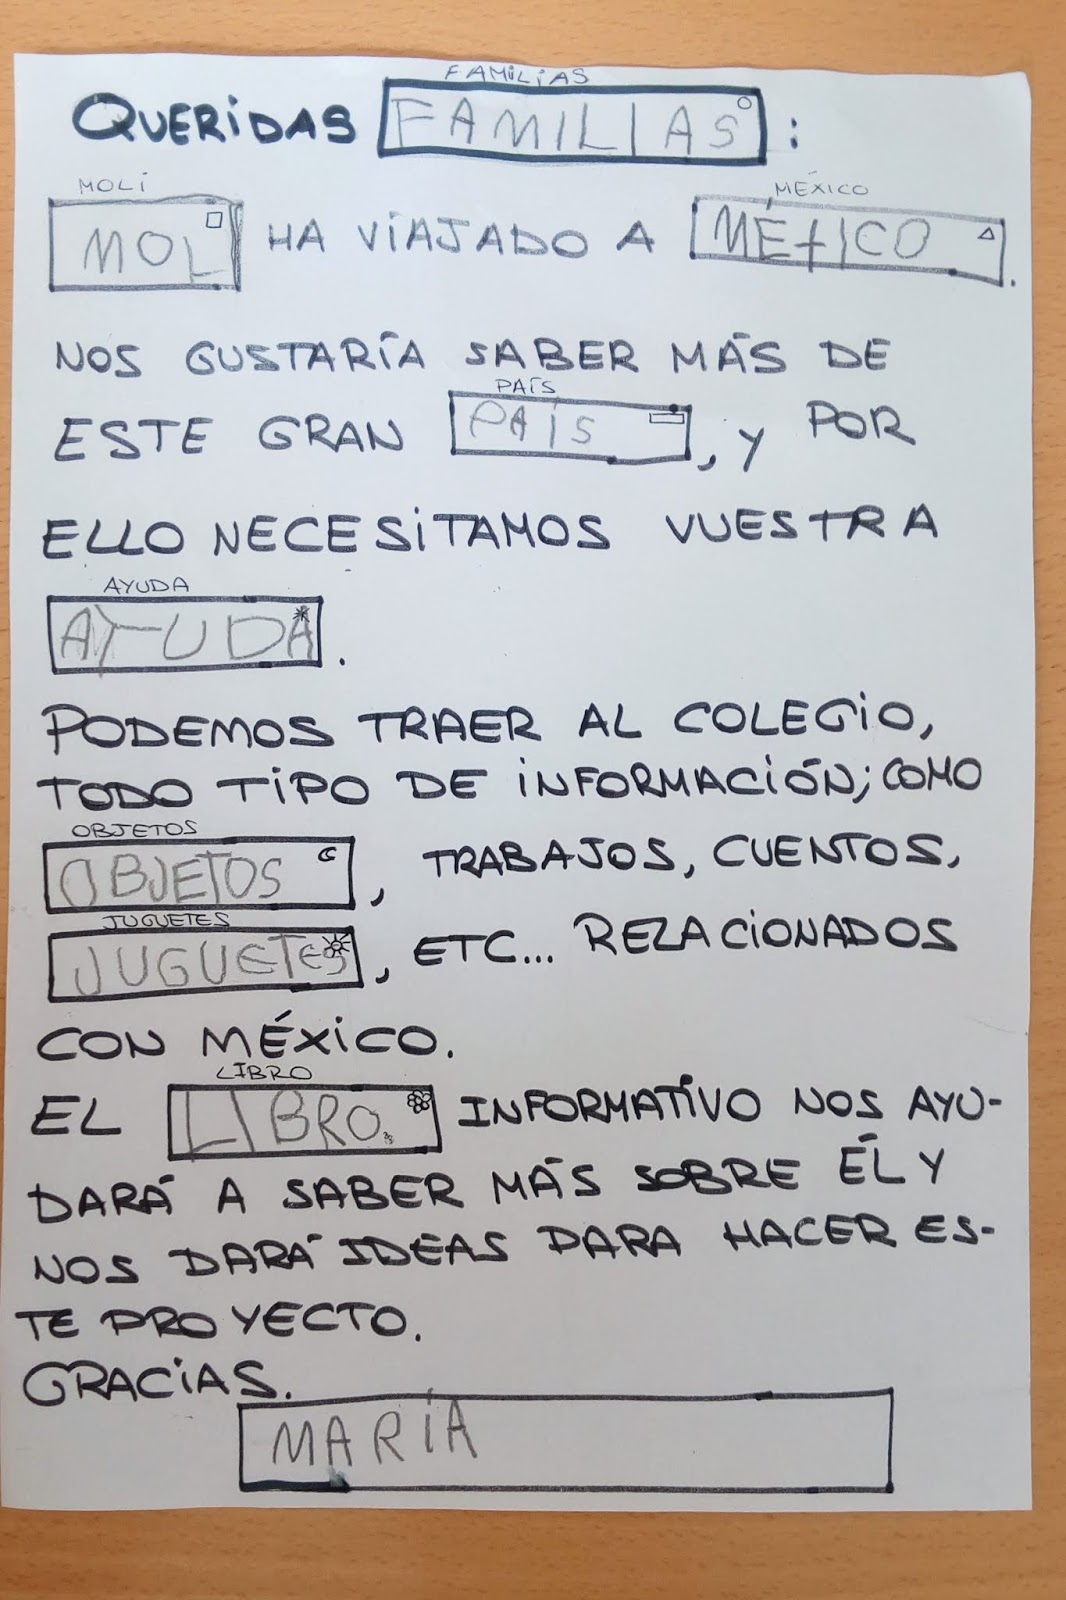 FAMILIAS
QUERIDAS FAMILIAS :
MOLI MÉXICO
MOL HA VIAJADO A MÉXICO .
NOS GUSTARÍA SABER MÁS DE
PAÍS
ESTE GRAN PAÍS , Y POR
ELLO NECESITAMOS VUESTRA
AYUDA
AYUDA .
PODEMOS TRAER AL COLEGIO,
TODO TIPO DE INFORMACIÓN; COMO
OBJETOS
OBJETOS , TRABAJOS, CUENTOS,
JUGUETES
JUGUETES , ETC... RELACIONADOS
CON MÉXICO.
LIBRO
EL LIBRO. INFORMATIVO NOS AYU-
DARÁ A SABER MÁS SOBRE ÉL Y
NOS DARÁ IDEAS PARA HACER ES-
TE PROYECTO.
GRACIAS.
MARÍA